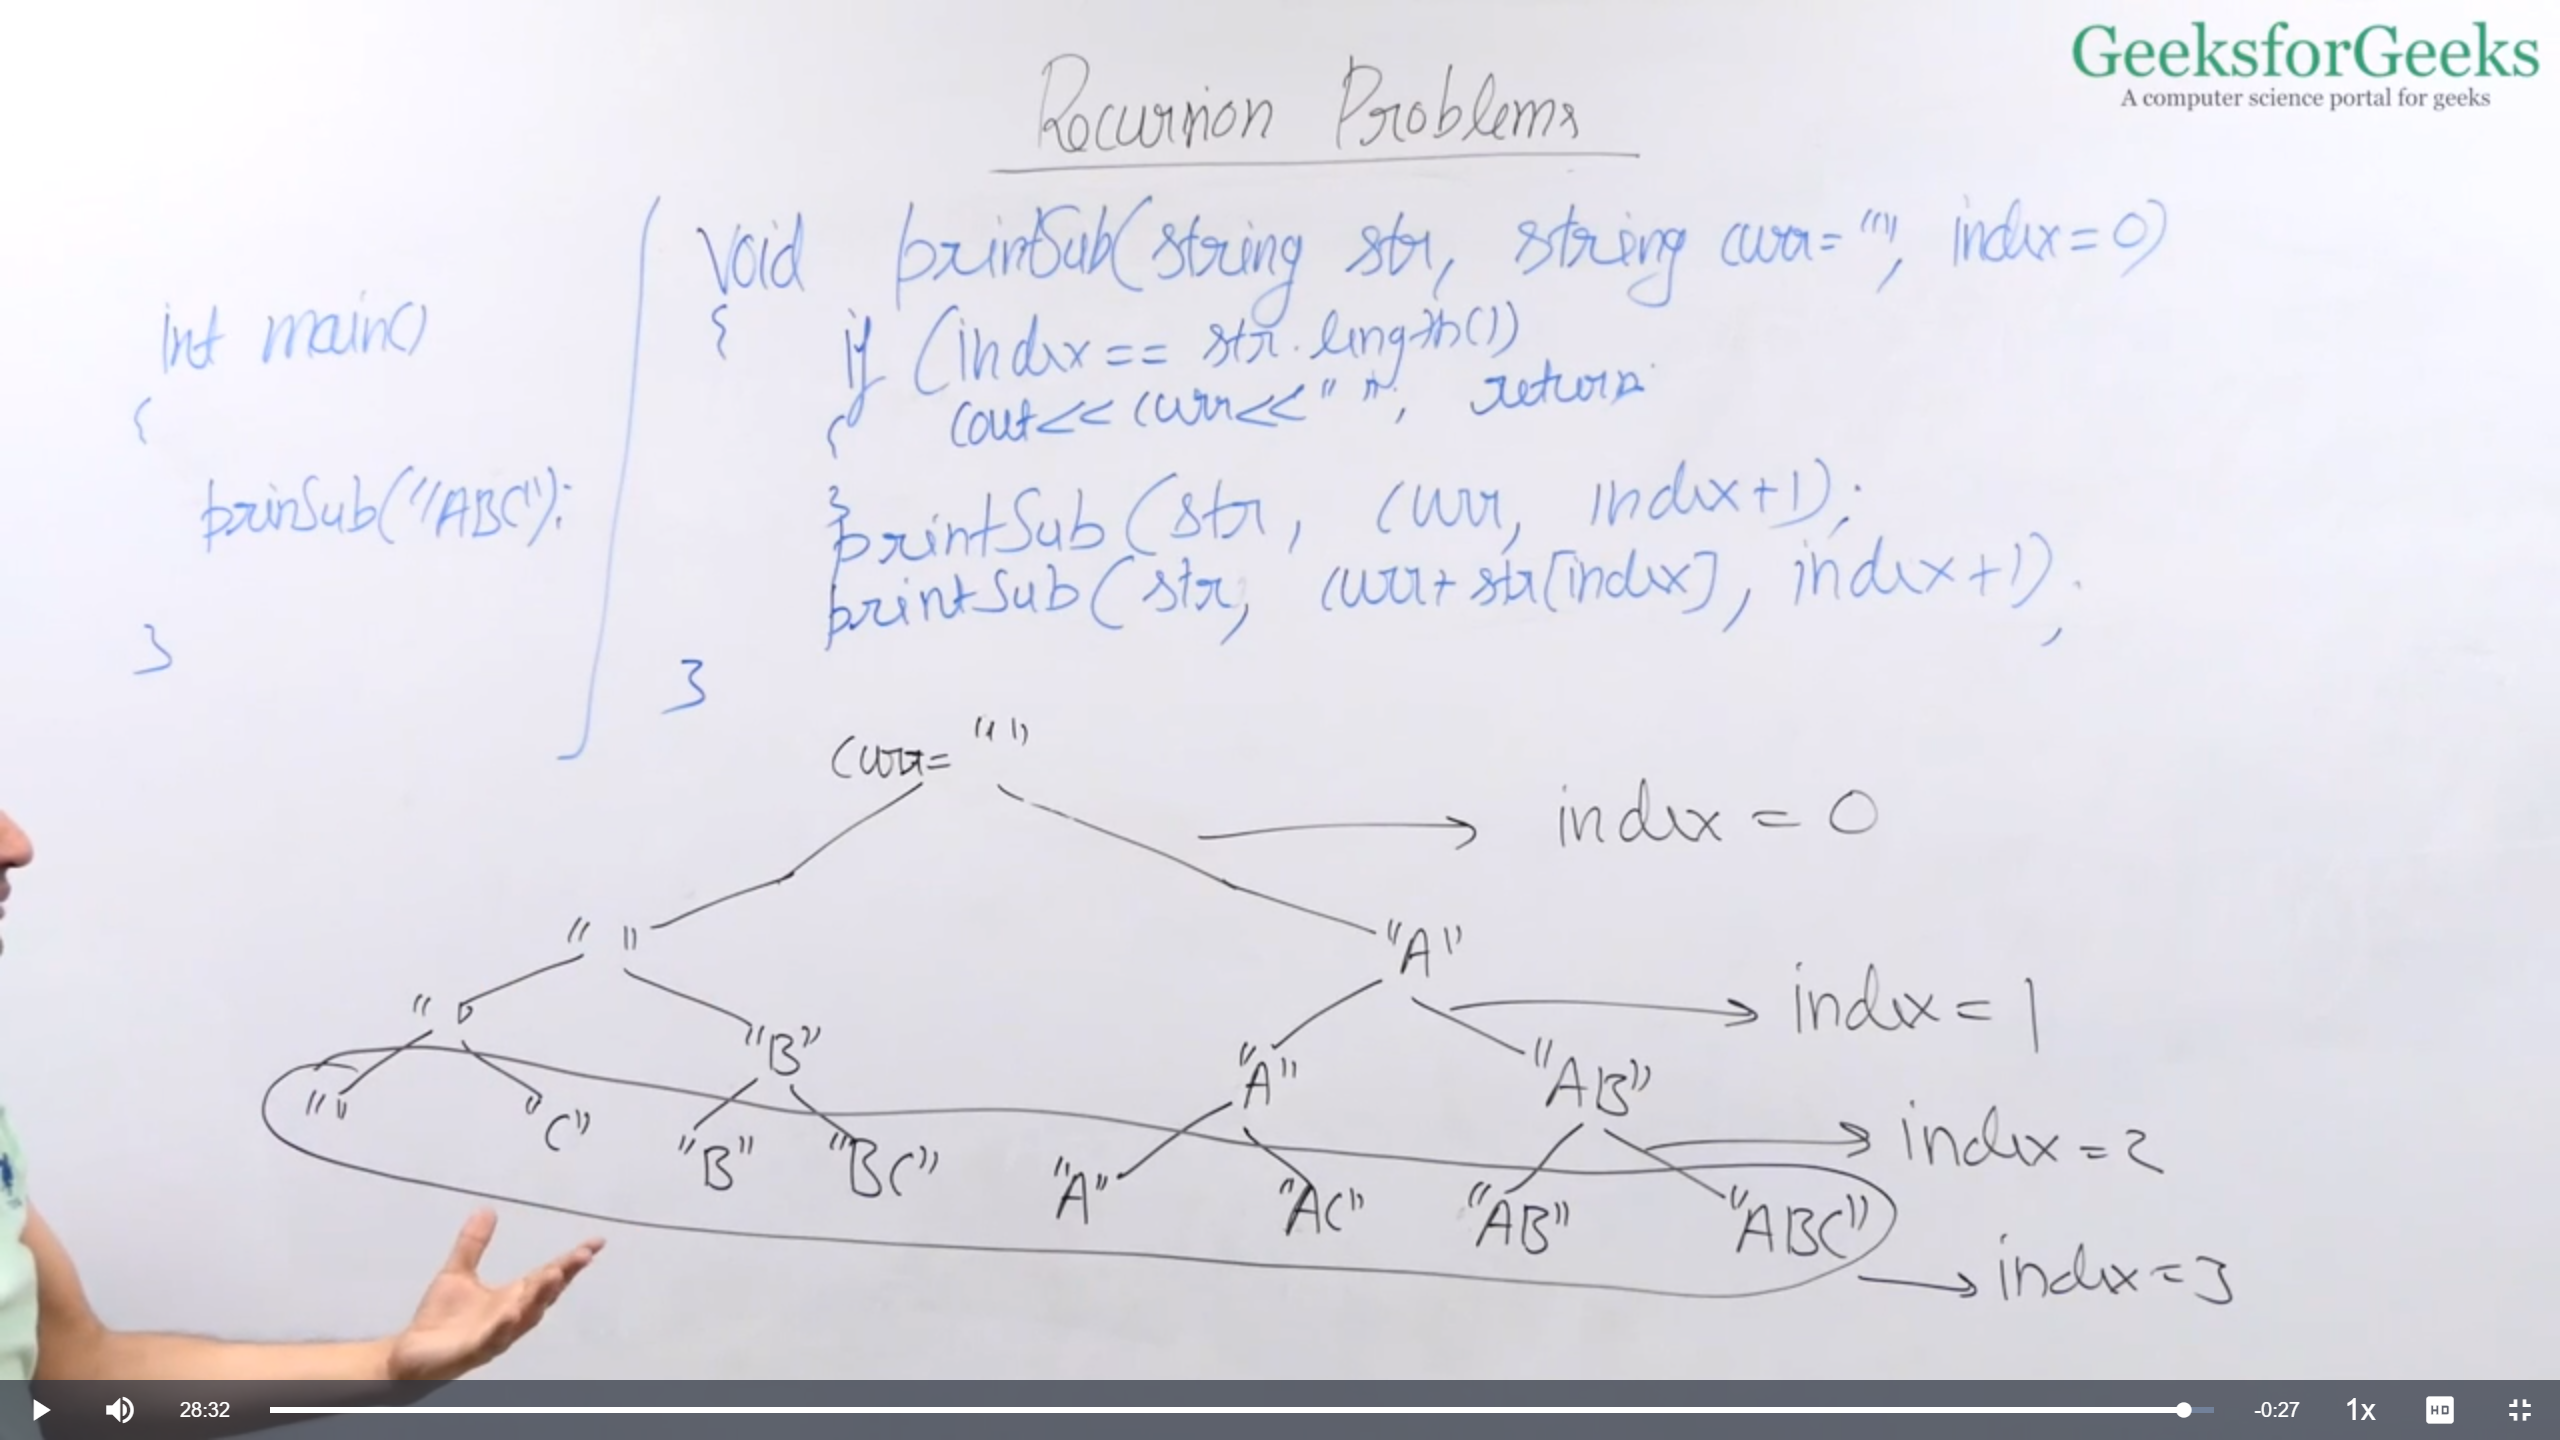 GeeksforGeeks
A computer science portal for geeks
Recursion Problems
int main()
{
prinSub("ABC");
}
void printSub(string str, string curr="", index=0)
{
if (index == str.length())
{ cout<< curr<<" "; return
}
printSub(str, curr, index+1);
printSub(str, curr+str[index], index+1);
}
curr= ""
index = 0
" " "A"
index = 1
" " "B" "A" "AB"
index = 2
"" "C" "B" "BC" "A" "AC" "AB" "ABC"
index = 3
28:32 -0:27 1x HD